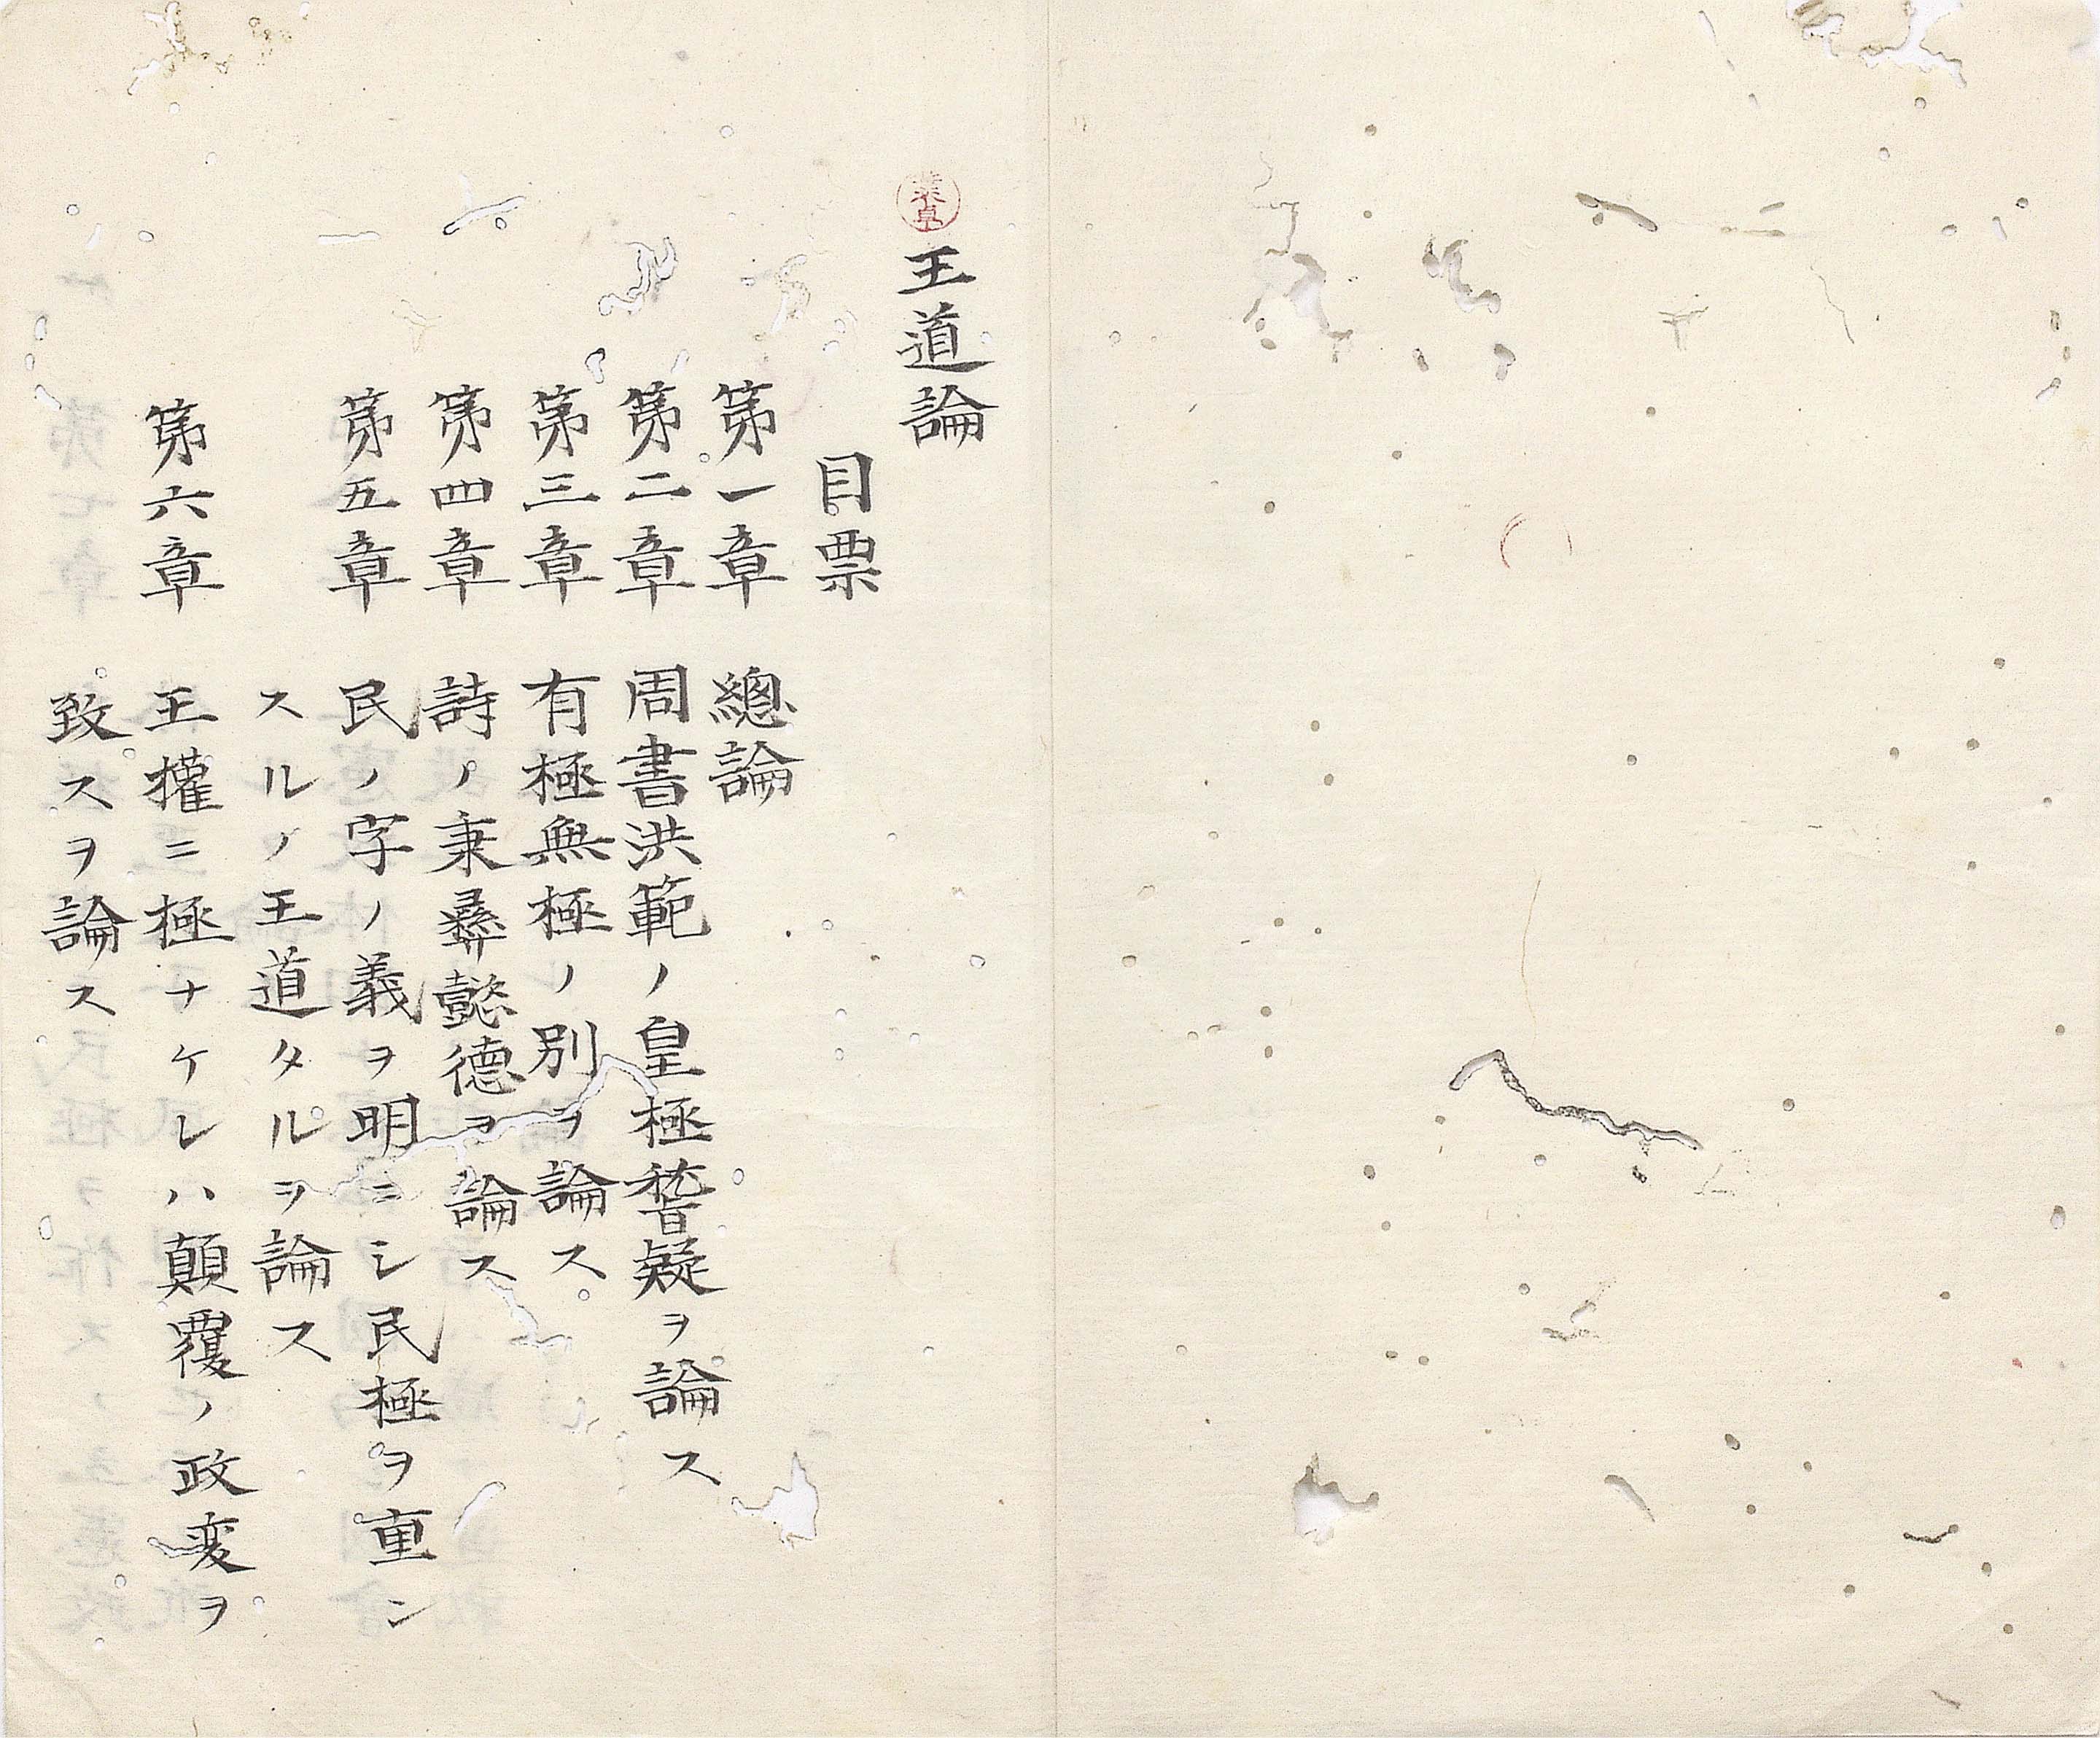 王道論
目票
第一章 總論
第二章 周書洪範ノ皇極稽疑ヲ論ス
第三章 有極無極ノ別ヲ論ス
第四章 詩ノ秉彝懿德ヲ論ス
第五章 民ノ字ノ義ヲ明ニシ民極ヲ重ン
スルノ王道タルヲ論ス
第六章 王權ニ極ナケレハ顛覆ノ政変ヲ
致スヲ論ス